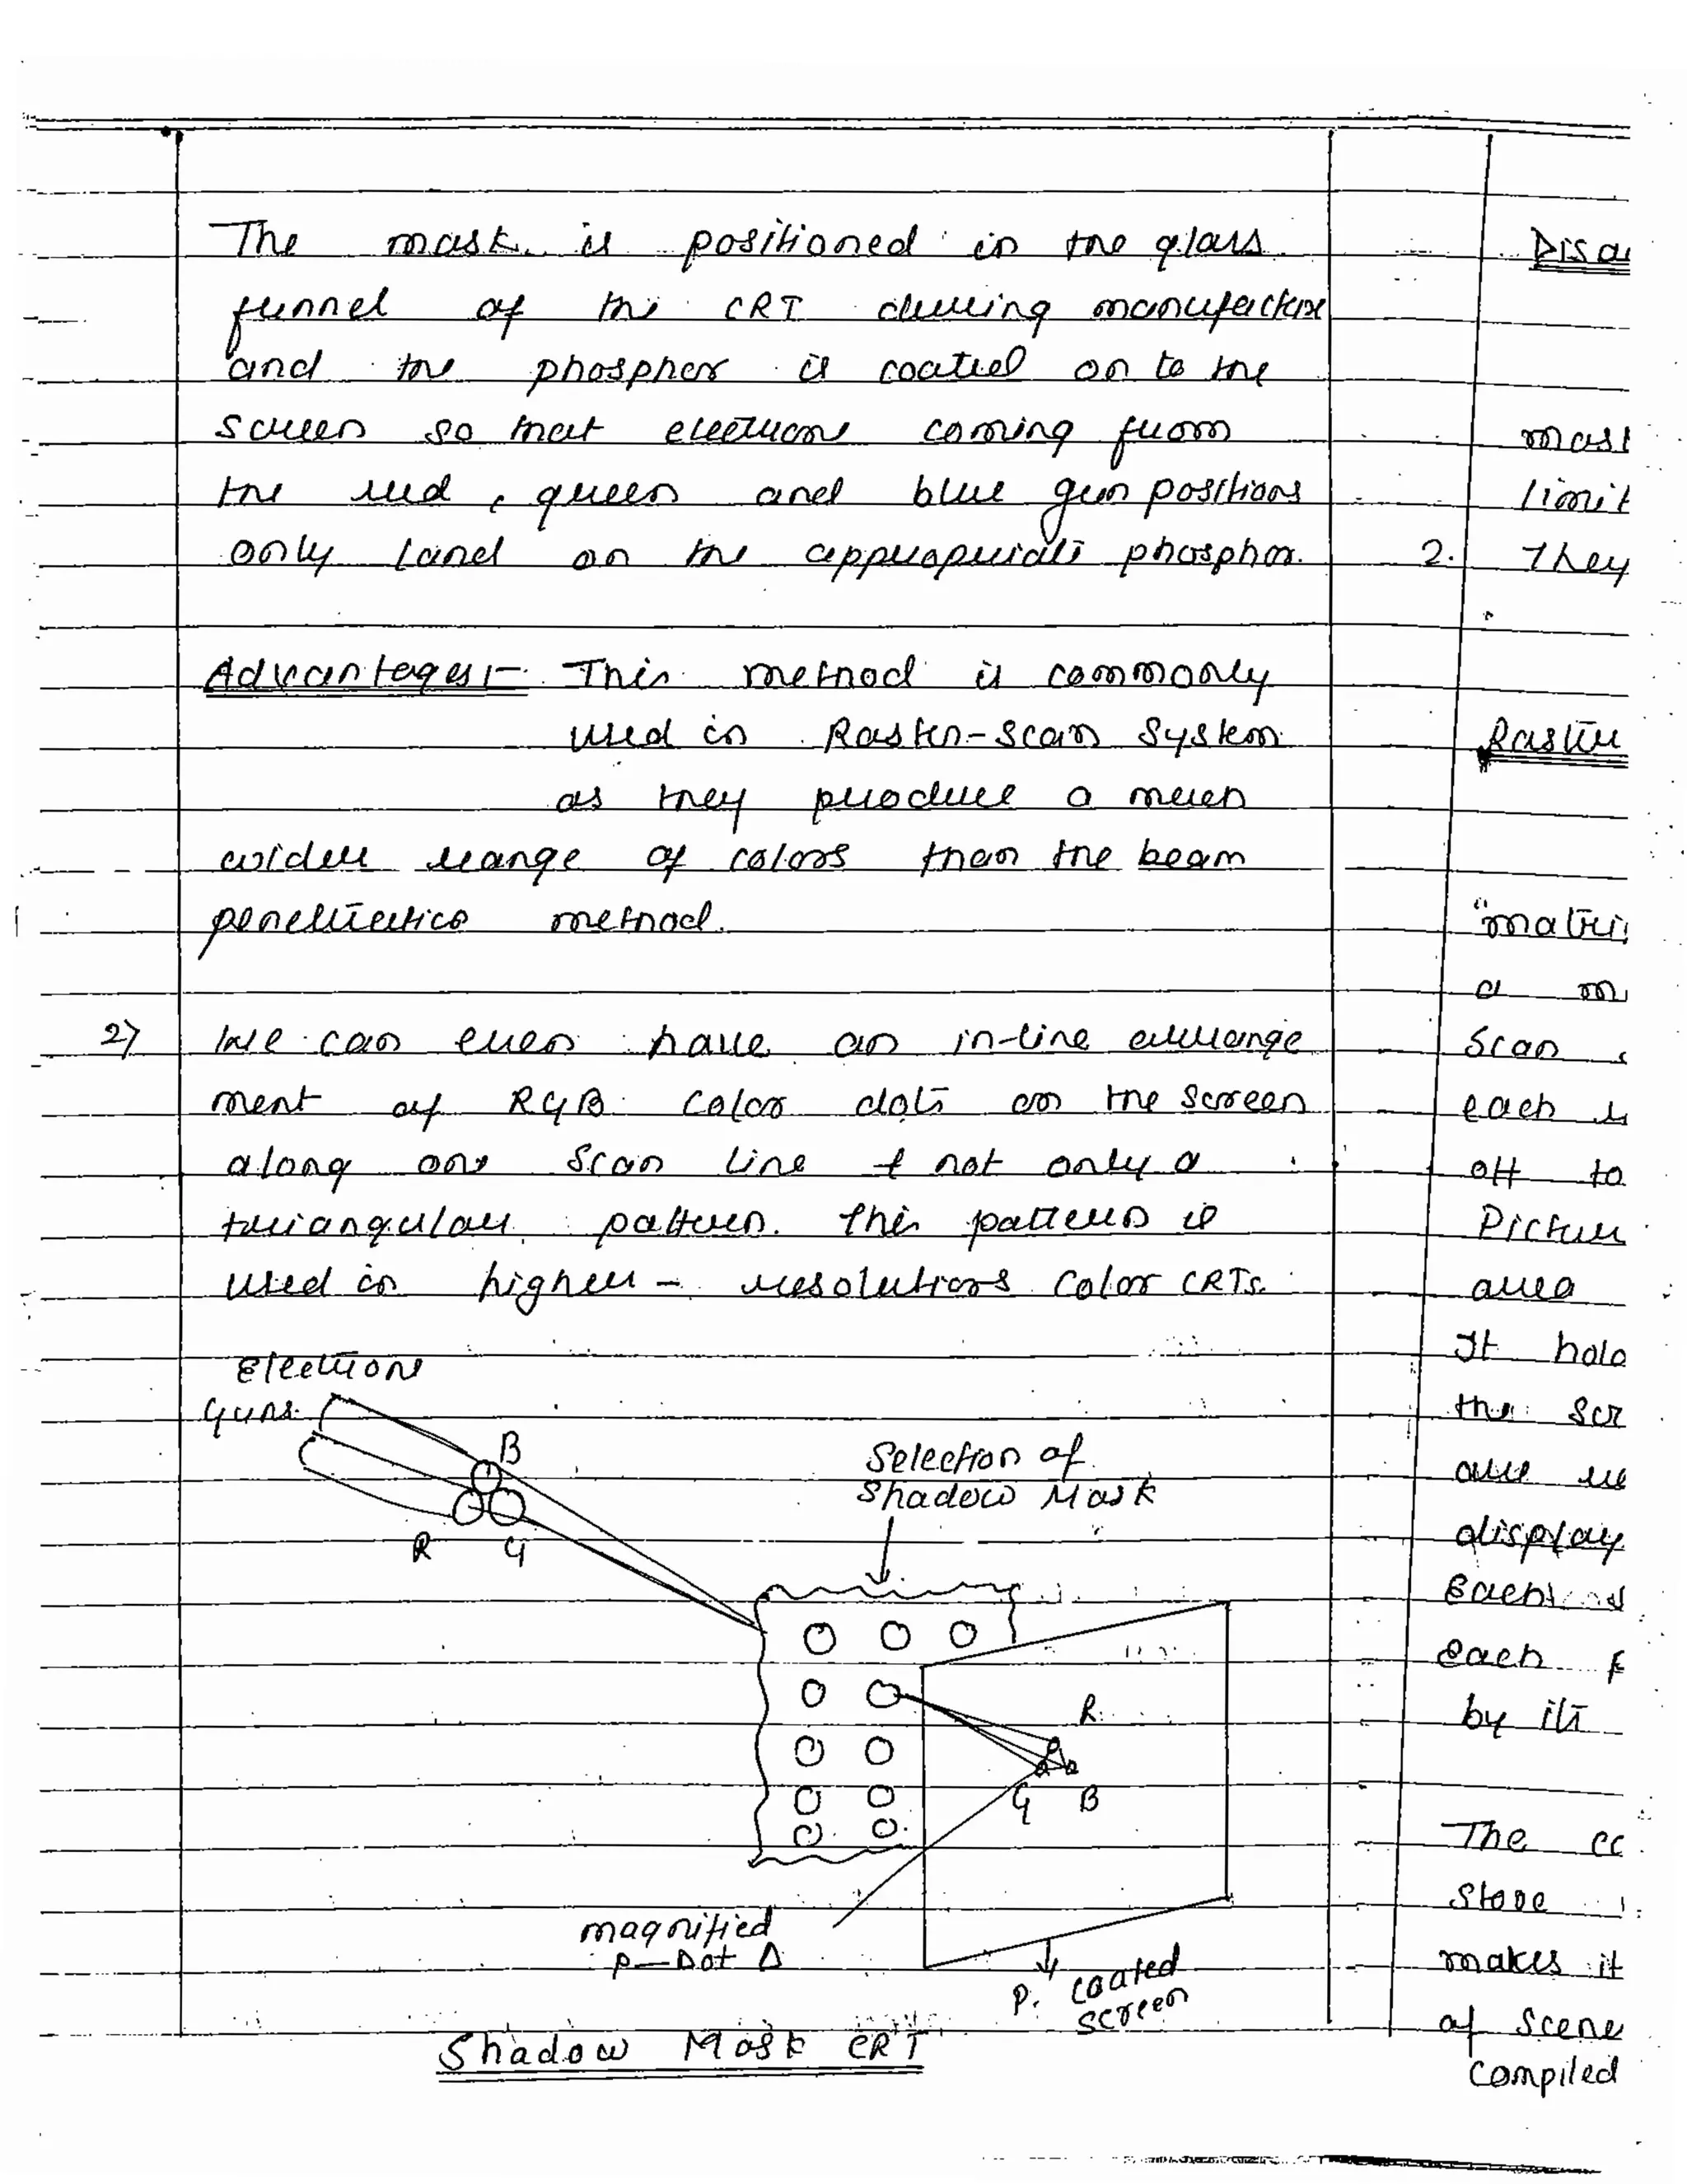 The mask is positioned in the glass
funnel of the CRT during manufacture
and the phosphor is coated on to the
screen so that electrons coming from
the red, green and blue gun positions
only land on the appropriate phosphor.
Advantages:- This method is commonly
used in Raster-Scan System
as they produce a much
wider range of colors than the beam
penetration method.
2) We can even have an in-line arrange
ment of RGB color dots on the screen
along one scan line & not only a
triangular pattern. This pattern is
used in higher - resolutions color CRTs.
Electrons
Guns
B
R G
Selection of
Shadow Mask
R
G B
magnified
P-Dot Δ
P. coated
screen
Shadow Mask CRT
limit
2. They
Raster
Scan
each
off to
Picture
area
It
the
are
display
Each
each
by its
The
Store
makes it
of scene
compiled